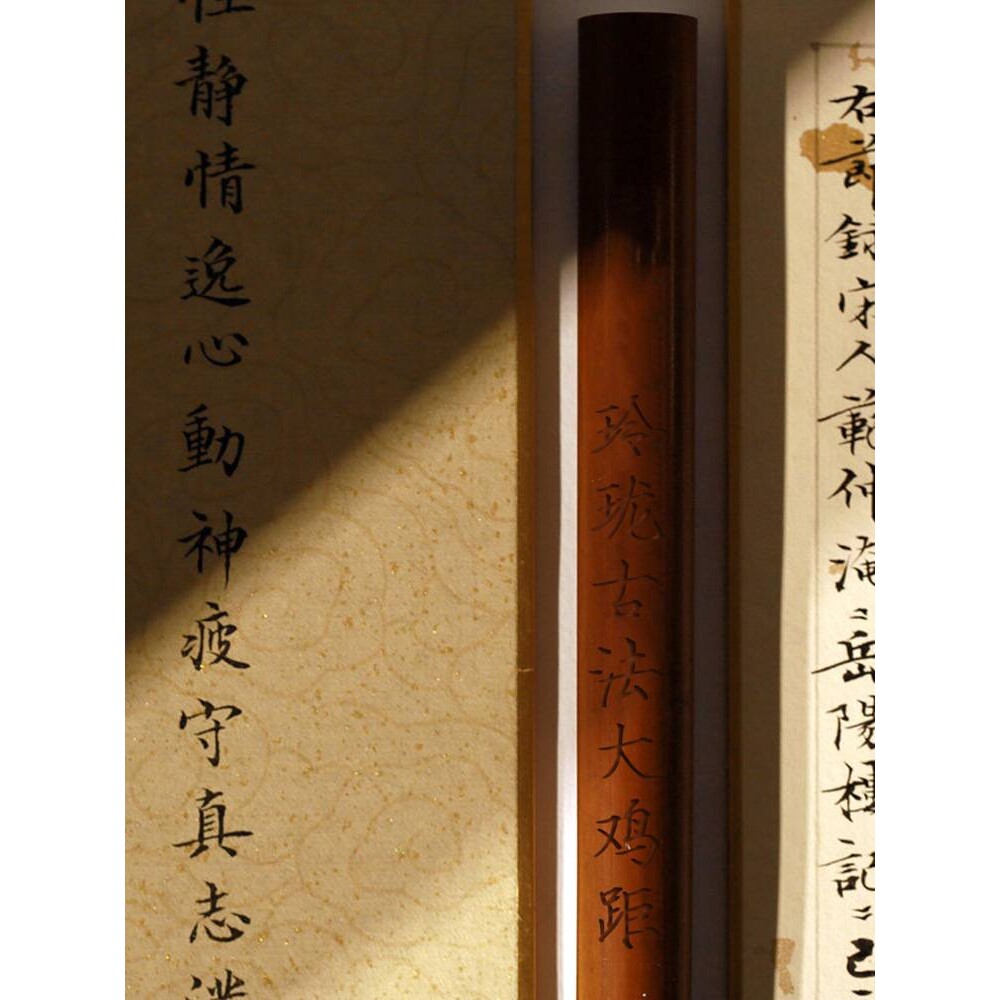 右節録宋人範仲淹岳陽樓記
玲珑古法大鸡距
性静情逸心動神疲守真志滿